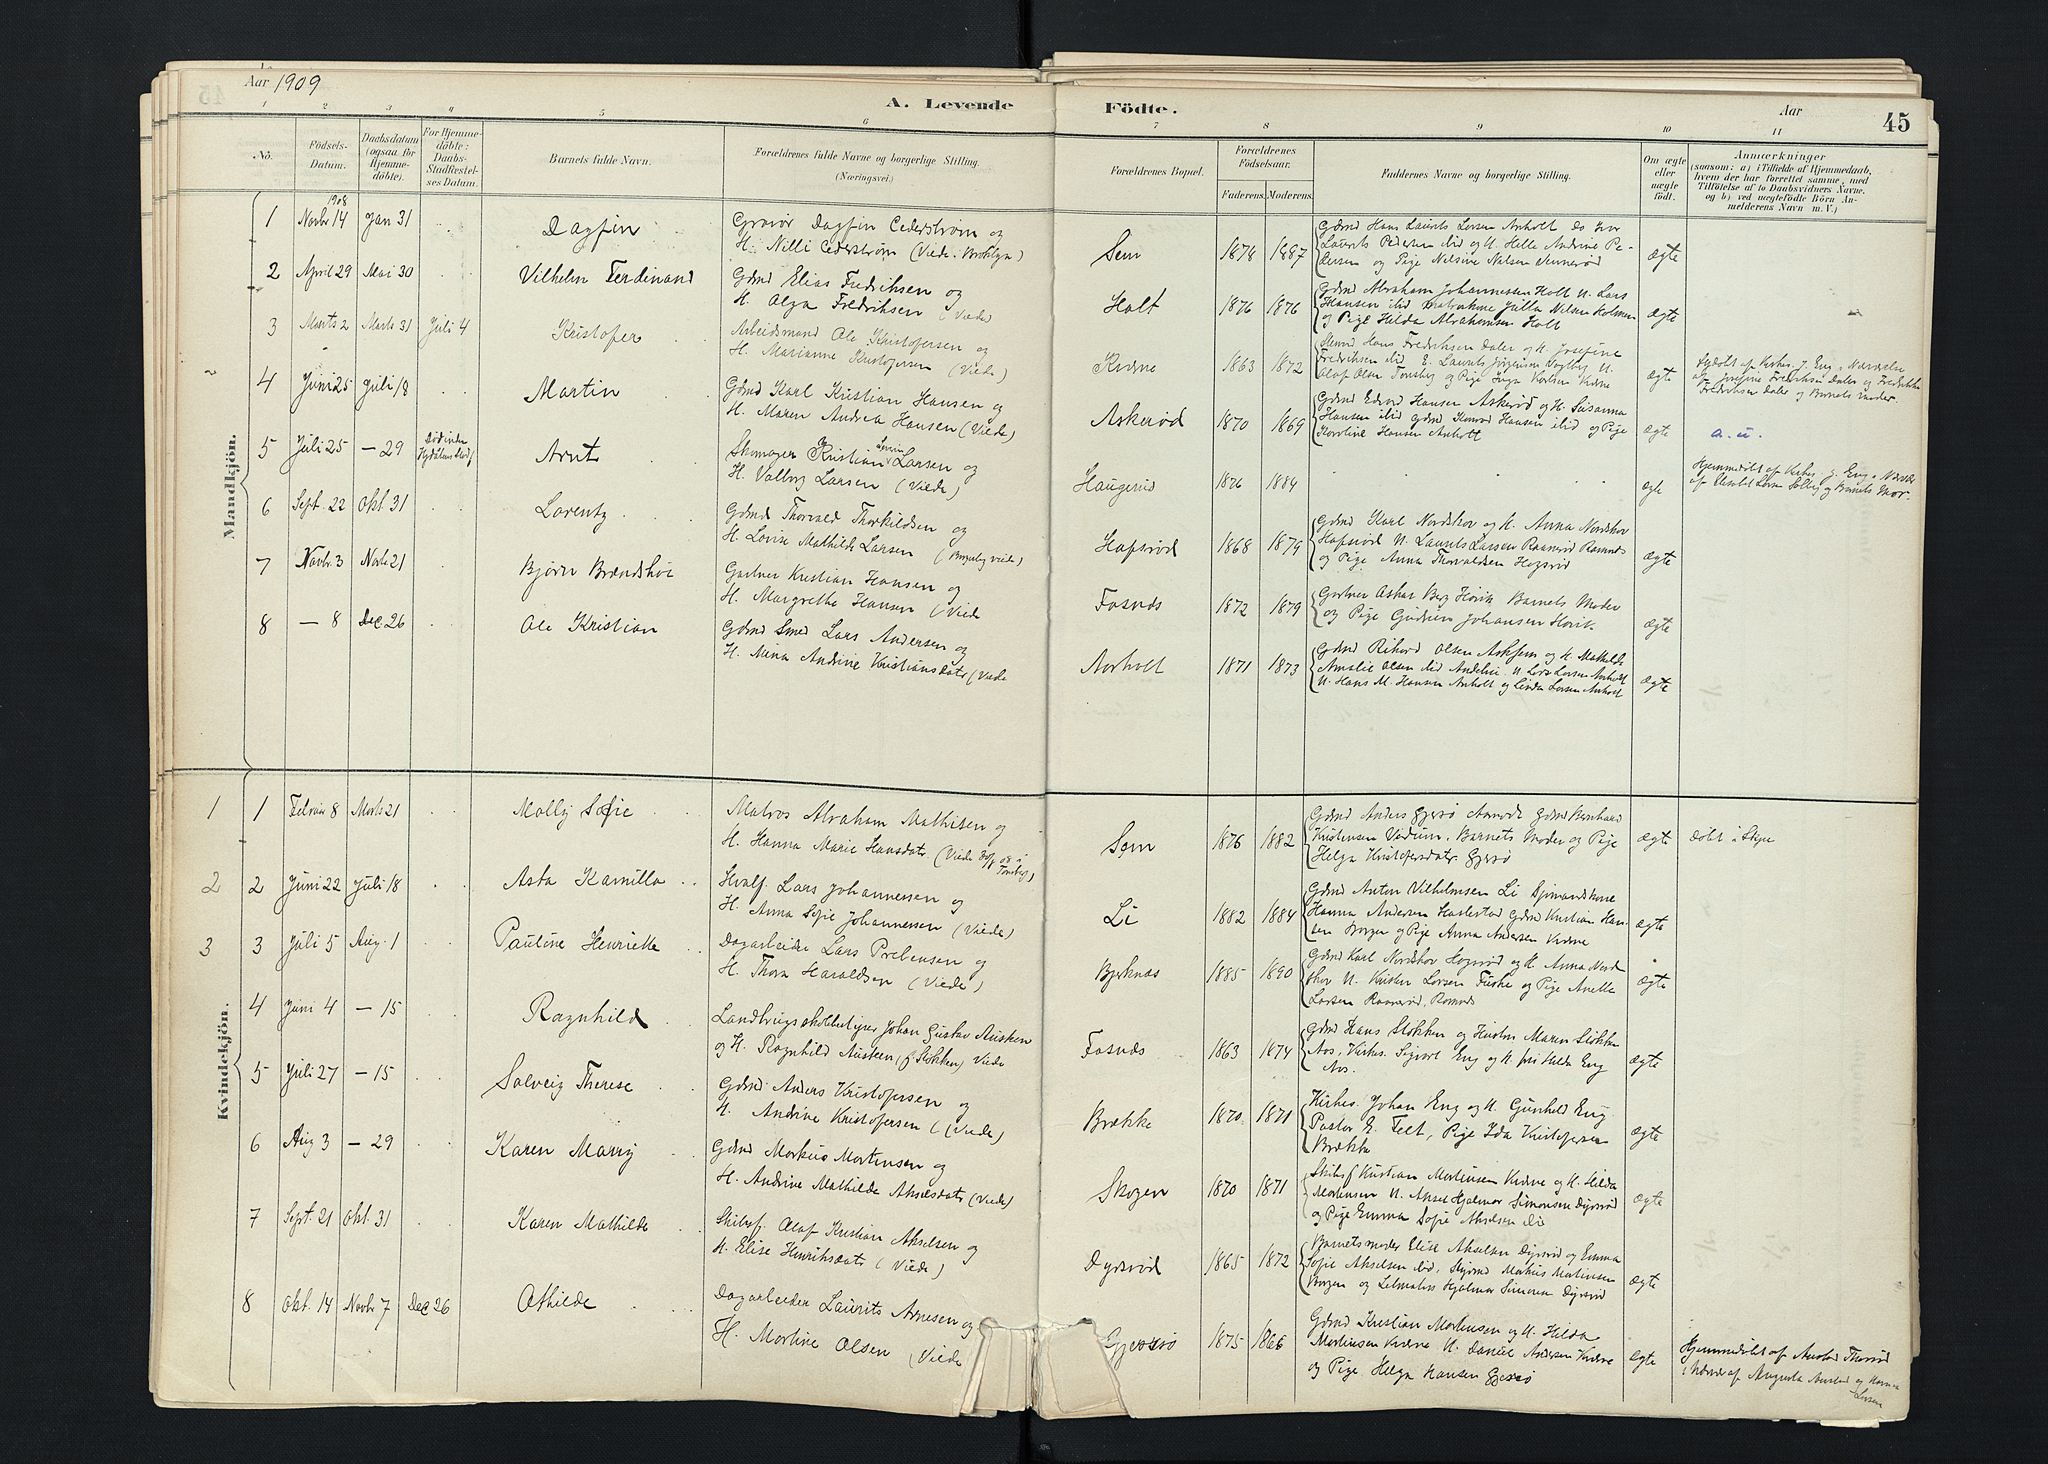 Aar 1909
A. Levende
Födte.
Aar
45
1 2 3 4 5 6 7 8 9 10 11
No.
Födsels-
Datum.
Daabsdatum
(ogsaa for
Hjemme-
döbte).
For Hjemme-
döbte:
Daabs-
Stadfæstel-
ses Datum.
Barnets fulde Navn.
Forældrenes fulde Navne og borgerlige Stilling.
(Næringsvei.)
Forældrenes Bopæl.
Forældrenes
Födselsaar.
Faderens. Moderens.
Faddernes Navne og borgerlige Stilling.
Om ægte
eller
uægte
födt.
Anmærkninger
(saasom: a) i Tilfælde af Hjemmedaab,
hvem der har forrettet samme, med
Tilföielse af to Daabsvidners Navne,
og b) ved uægtefödte Börn An-
melderens Navn m. V.)
Mandkjön.
1908
1 Novbr 14 Jan 31 Dagfin
Gravör Dagfin Cederström og
H. Nilli Cederström (Viede i Broklyn)
Sem 1874 1887
Gdmd Hans Laurits Larsen Anholt
Laurits Pedersen ibid og H. Helle Andrine Pe-
dersen og Pige Nilsine Nilsen
ægte
2 April 29 Mai 30 Vilhelm Ferdinand
Gdmd Elias Fredriksen og
H. Olga Fredriksen (Viede)
Holt 1876 1876
Gdmd Abraham Johannessen Holt U. Lars
Hansen ibid Julla Nilsen Holmen
og Pige Hilda Abrahamsen Holt
ægte
3 Marts 2 Marts 31 Juli 4 Kristofer
Arbeidsmand Ole Kristofersen og
H. Marianne Kristofersen (Viede)
Kverne 1863 1872
Hans Fredriksen Daler og H. Josefine
Fredriksen ibid E. Laurits Jørgensen U.
Olaf Olsen Tønsberg og Pige Inga Karlsen Kverne
ægte
af Kirkes. J. Eng i Nærværelse
af Josefine Fredriksen Daler og Fredrikke
Fredriksen Daler og Barnets Moder.
4 Juni 25 Juli 18 Martin
Gdmd Karl Kristian Hansen og
H. Maren Andrea Hansen (Viede)
Askerød 1870 1869
Gdmd Edvard Hansen Askerød og H. Susanna
Hansen ibid Gdmd Konrad Hansen ibid og Pige
Karoline Hansen Anholt
ægte
a. u.
5 Juli 25 — 29
Død inden
Arnt
Skomager Kristian Larsen og
H. Valborg Larsen (Viede)
Haugerud 1876 1884
ægte
Hjemmedöbt af Kirkes. J. Eng i Nærv
af Larsen Solberg og Barnets Mor.
6 Sept. 22 Okt. 31 Lorentz
Gdmd Thorvald Thorkildsen og
H. Lovise Mathilde Larsen (Borgerlig viede)
Hafsrød 1868 1879
Gdmd Karl Nordskov og H. Anna Nordskov
Hafsrød U. Laurits Larsen Raanerød Ramnes
og Pige Anna Thorvaldsen Hogsrød
ægte
7 Novbr. 3 Novbr 21 Bjørn Brændshøi
Gartner Kristian Hansen og
H. Margrethe Hansen (Viede
Fosnæs 1872 1879
Gartner Askar Berg Horik Barnets Moder
og Pige Gudrun Johansen Horik
ægte
8 — 8 Dec. 26 Ole Kristian
Gdmd Smed Lars Andersen og
H. Mina Andrine Kristiansdatr. (Viede
Aarholt 1871 1873
Gdmd Rikard Olsen Askjem og H. Mathilde
Amalie Olsen ibid U. Lars Larsen Anholt
U. Hans M. Hansen Anholt og Linda Larsen Anholt
ægte
Kvindekjön.
1 1 Februar 8 Marts 21 Molly Sofie
Matros Abraham Mathisen og
H. Hanna Marie Hansdatr. (Viede 08 i
Tønsberg)
Sem 1876 1882
Gdmd Anders Gjersø Gdmd Bernhard
Kristensen Vedum. Barnets Moder og Pige
Helga Kristofersdatr Gjersø
ægte
døbt i
2 2 Juni 22 Juli 18 Asta Kamilla
Hvalf. Lars Johannessen og
H. Anna Sofie Johannessen (Viede)
Li 1882 1884
Gdmd Anton Vilhelmsen Li Gjømandskone
Hanna Andersen Haslestad Gdmd Kristian Han-
sen Borgen og Pige Anna Andersen Kverne
ægte
3 3 Juli 5 Aug. 1 Pauline Henrikke
Dagarbeider Lars Prebensen og
H. Thora Haraldsen (Viede)
Bjerknæs 1885 1890
Gdmd Karl Nordskov Hogsrød og H. Anna Nord
skov U. Kristen Larsen Fuske og Pige Anette
Larsen Raanerød, Ramnæs
ægte
4 Juni 4 — 15 Ragnhild
Landbrugsskolebestyrer Johan Gustav Ausken
og H. Ragnhild Ausken (f. Stokken) Viede
Fosnæs 1863 1874
Gdmd Hans Stokken og Hustru Maren Stokken
Aas, Kirkes. Sigvart Eng og H. fru Hilda Eng
Aas.
ægte
5 Juli 27 — 15 Solveig Therese
Gdmd. Anders Kristofersen og
H. Andrine Kristofersen (Viede)
Brække 1870 1871
Kirkes. Johan Eng og H. Gunhild Eng
Pastor E. Telt, Pige Ida Kristofersen
Brække
ægte
6 Aug 3 — 29 Karen Marry
Gdmd Markus Mortensen og
H. Andrine Mathilde Akselsdatr (Viede)
Skogen 1870 1871
Skibsf Kristian Mortensen Kverne og H. Hilda
Mortensen U. Aksel Hjalmar Simonsen Dyrsrød
og Pige Emma Sofie Akselsen ibid
ægte
7 Sept. 21 Okt. 31 Karen Mathilde
Skibsf. Olaf Kristian Akselsen og
H. Elise Henriksdatr (Viede)
Dyrsrød 1865 1872
Barnets moder Elise Akselsen Dyrsrød og Emma
Sofie Akselsen ibid, Markus Mortensen
Borgen og Hjalmar Simonsen Dyrsrød
ægte
8 Okt. 14 Novbr 7 Dec 26 Othilde
Dagarbeider Laurits Arnesen og
H. Martine Olsen (Viede
Gjersø 1875 1866
Gdmd Kristian Mortensen og H. Hilda
Mortensen Kverne U. Daniel Andersen Kverne
og Pige Helga Hansen Gjersø
ægte
Hjemmedöbt af Thorsrød
i Nærvær af Augusta og Hanna
Larsen